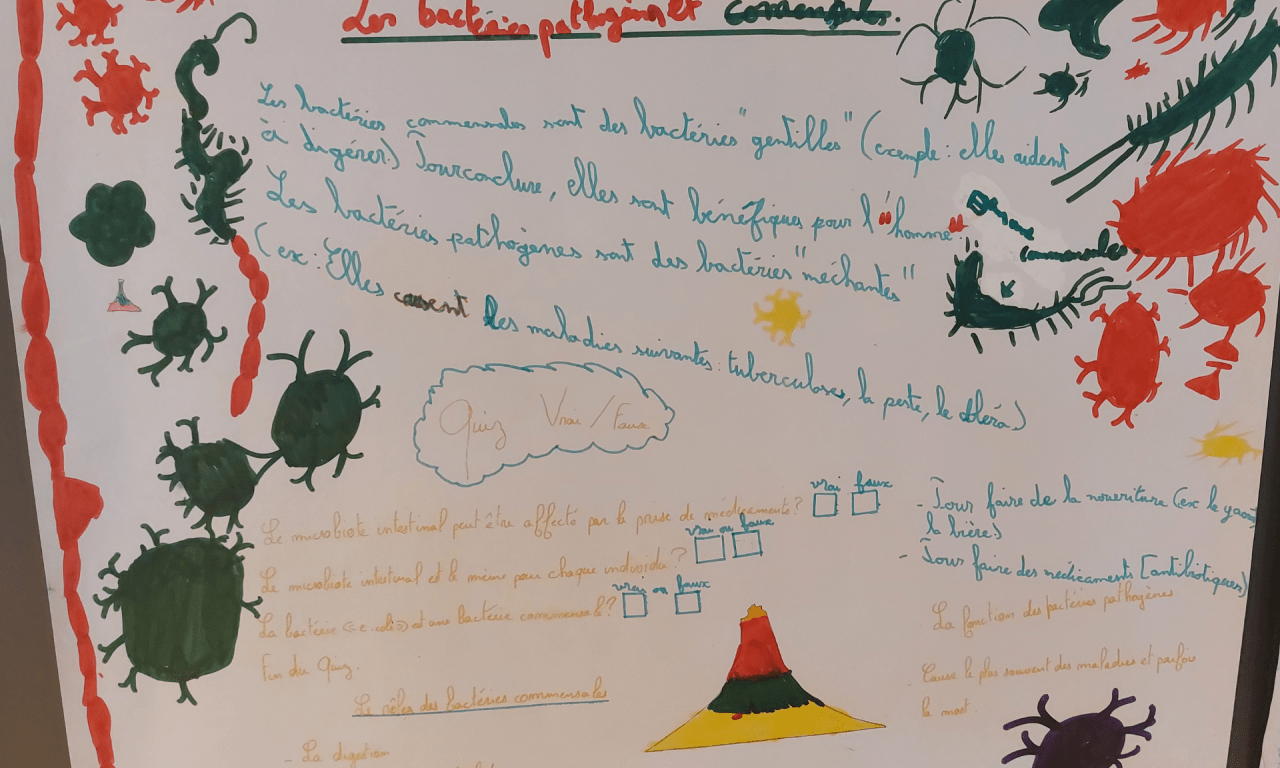 Les bactéries pathogènes et commensales.
Les bactéries commensales sont des bactéries "gentilles" (exemple : elles aident
à digérer.) Pour conclure, elles sont bénéfiques pour l'"homme".
Les bactéries pathogènes sont des bactéries "méchantes"
(ex : Elles causent les maladies suivantes : tuberculose, la peste, le choléra)
commensales
Quiz Vrai / Faux
Le microbiote intestinal peut être affecté par la prise de médicaments ? vrai faux
Le microbiote intestinal et le même pour chaque individu ? vrai ou faux
La bactérie << e.coli >> et une bactérie commensale ? vrai ou faux
Fin du Quiz.
Le rôles des bactéries commensales
- La digestion
- Pour faire de la nourriture (ex le
la bière)
- Pour faire des médicaments [antibiotiques)
La fonction des bactéries pathogènes
Cause le plus souvent des maladies et parfois
la mort.